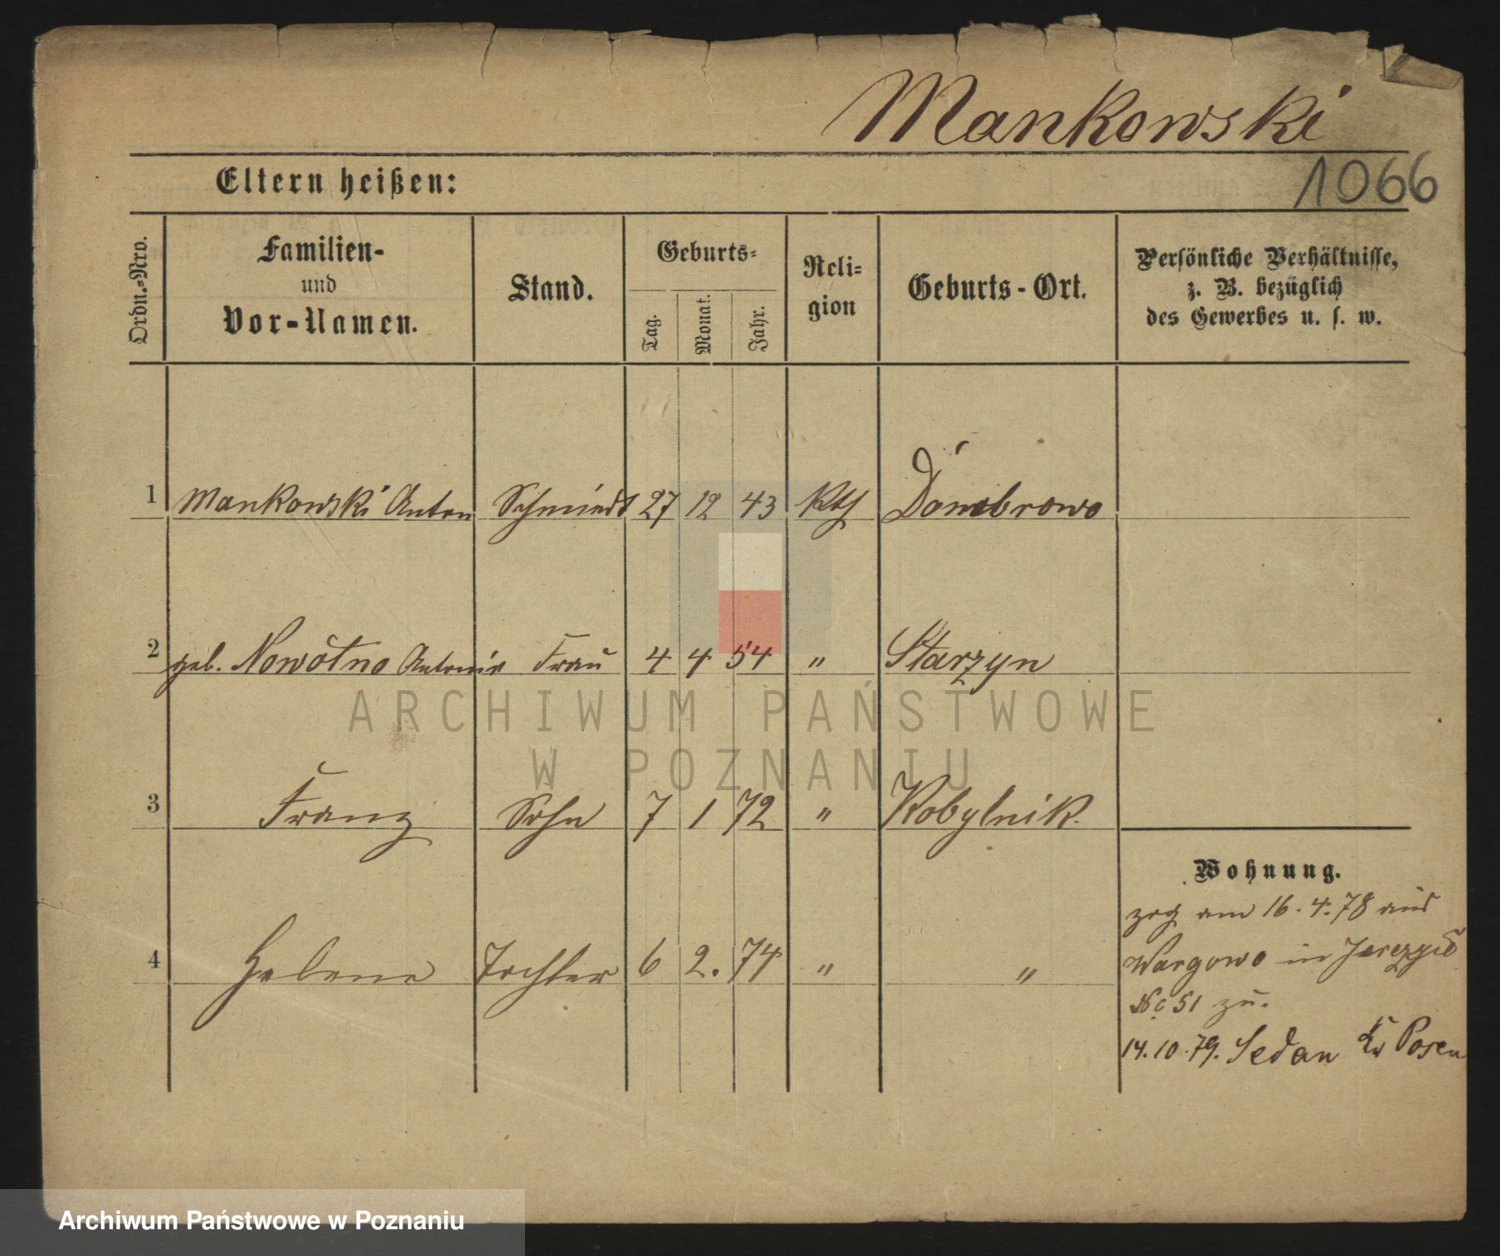 Mankowski
1066
Eltern heißen:
Ordn.-Nro.
Familien-
und
Vor-Namen.
Stand.
Geburts-
Tag.
Monat.
Jahr.
Reli-
gion
Geburts-Ort.
Persönliche Verhältnisse,
z. B. bezüglich
des Gewerbes u. s. w.
1 Mankowski Anton Schmiedt 27 12 43 Kth Dombrowo
2 geb. Nowotno Antonie Frau 4 4 54 " Starzyn
3 Franz Sohn 7 1 72 " Kobylnik.
4 Helene Tochter 6 2. 74 " "
Wohnung.
zog am 16. 4. 78 aus
Wargowo in
No 51 zu.
14. 10. 79. Sedan Kr Posen
ARCHIWUM PAŃSTWOWE
W POZNANIU
Archiwum Państwowe w Poznaniu